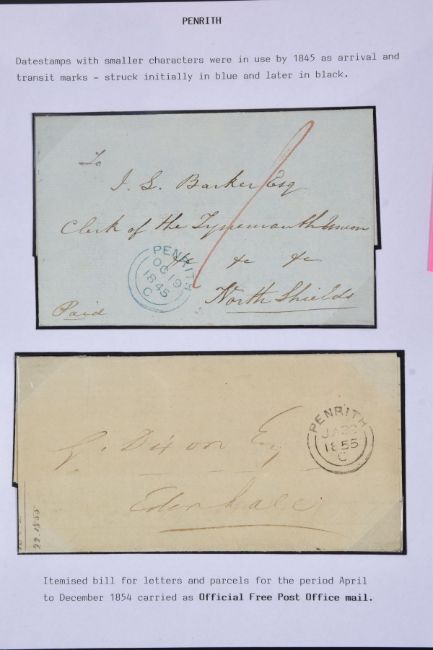 PENRITH
Datestamps with smaller characters were in use by 1845 as arrival and
transit marks - struck initially in blue and later in black.
To
J. S. Barker Esq
Clerk of the Tynemouth Union
&c &c &c
North Shields
Paid
PENRITH
OC 19
1845
C
G. Dixon Esq
Edenhall
PENRITH
1855
C
Itemised bill for letters and parcels for the period April
to December 1854 carried as Official Free Post Office mail.